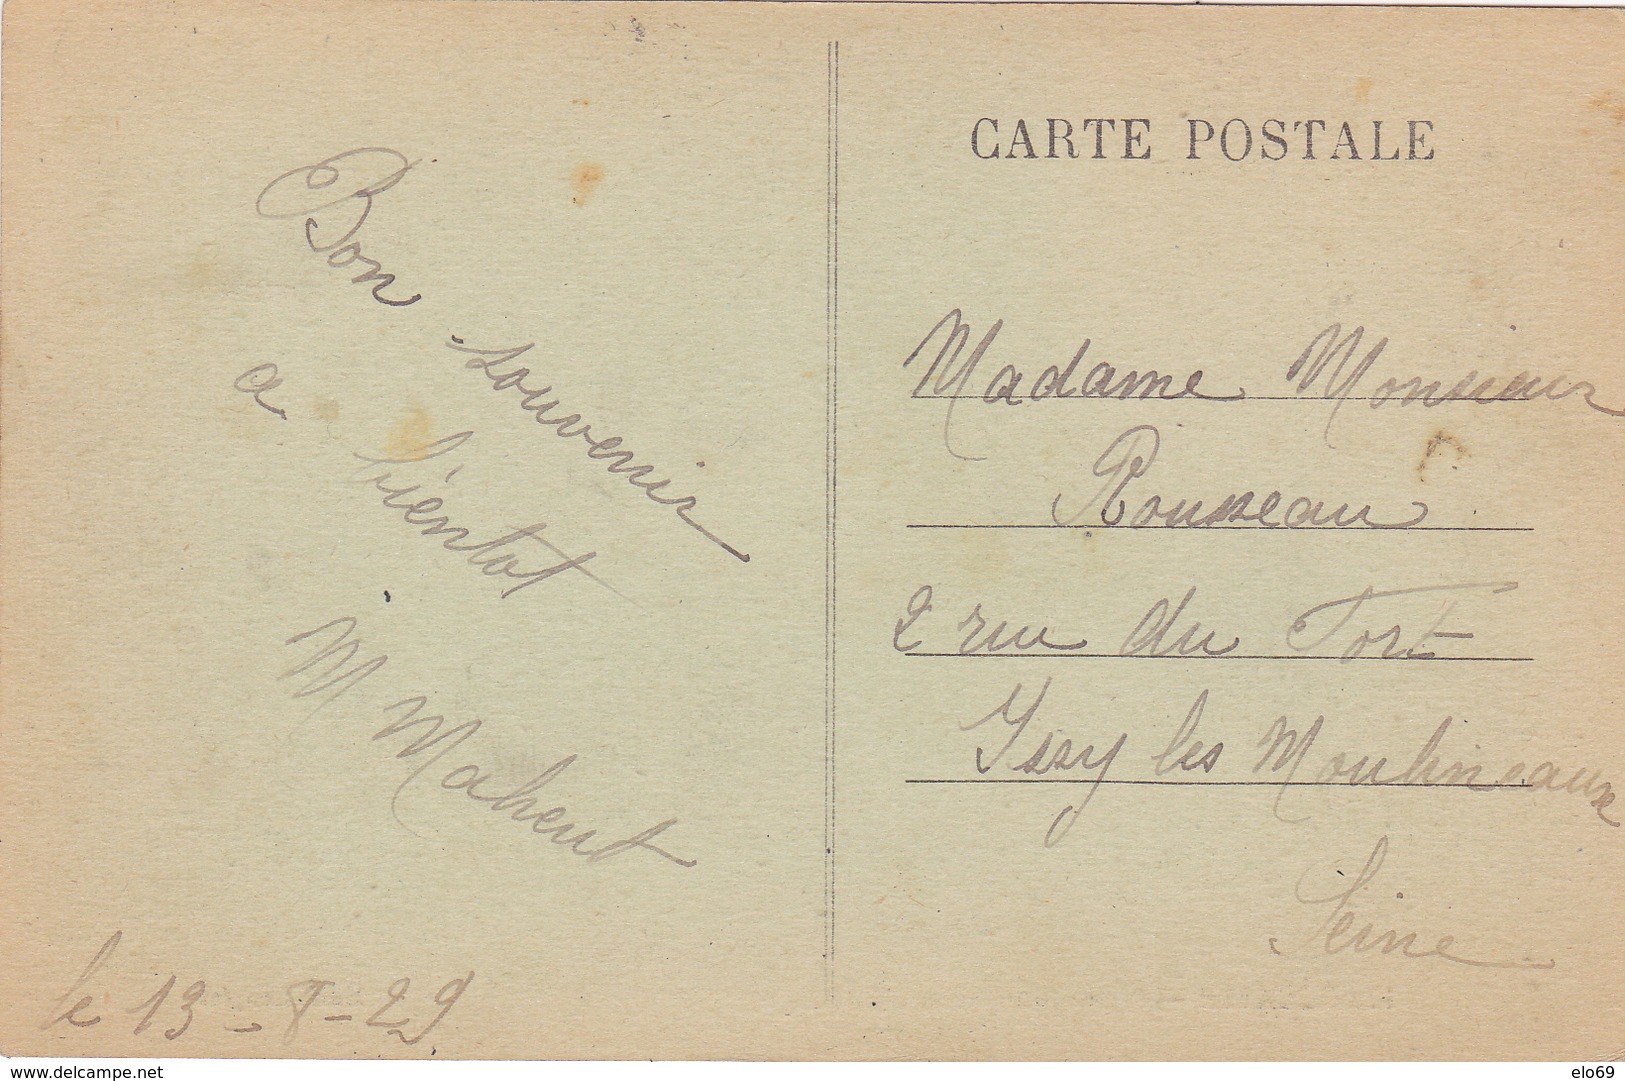 CARTE POSTALE
Bon souvenir
a bientot
M Maheut
le 13-8-29
Madame Monsieur
Rousseau
2 rue du Fort
Issy les Moulineaux
Seine
www.delcampe.net
elo69